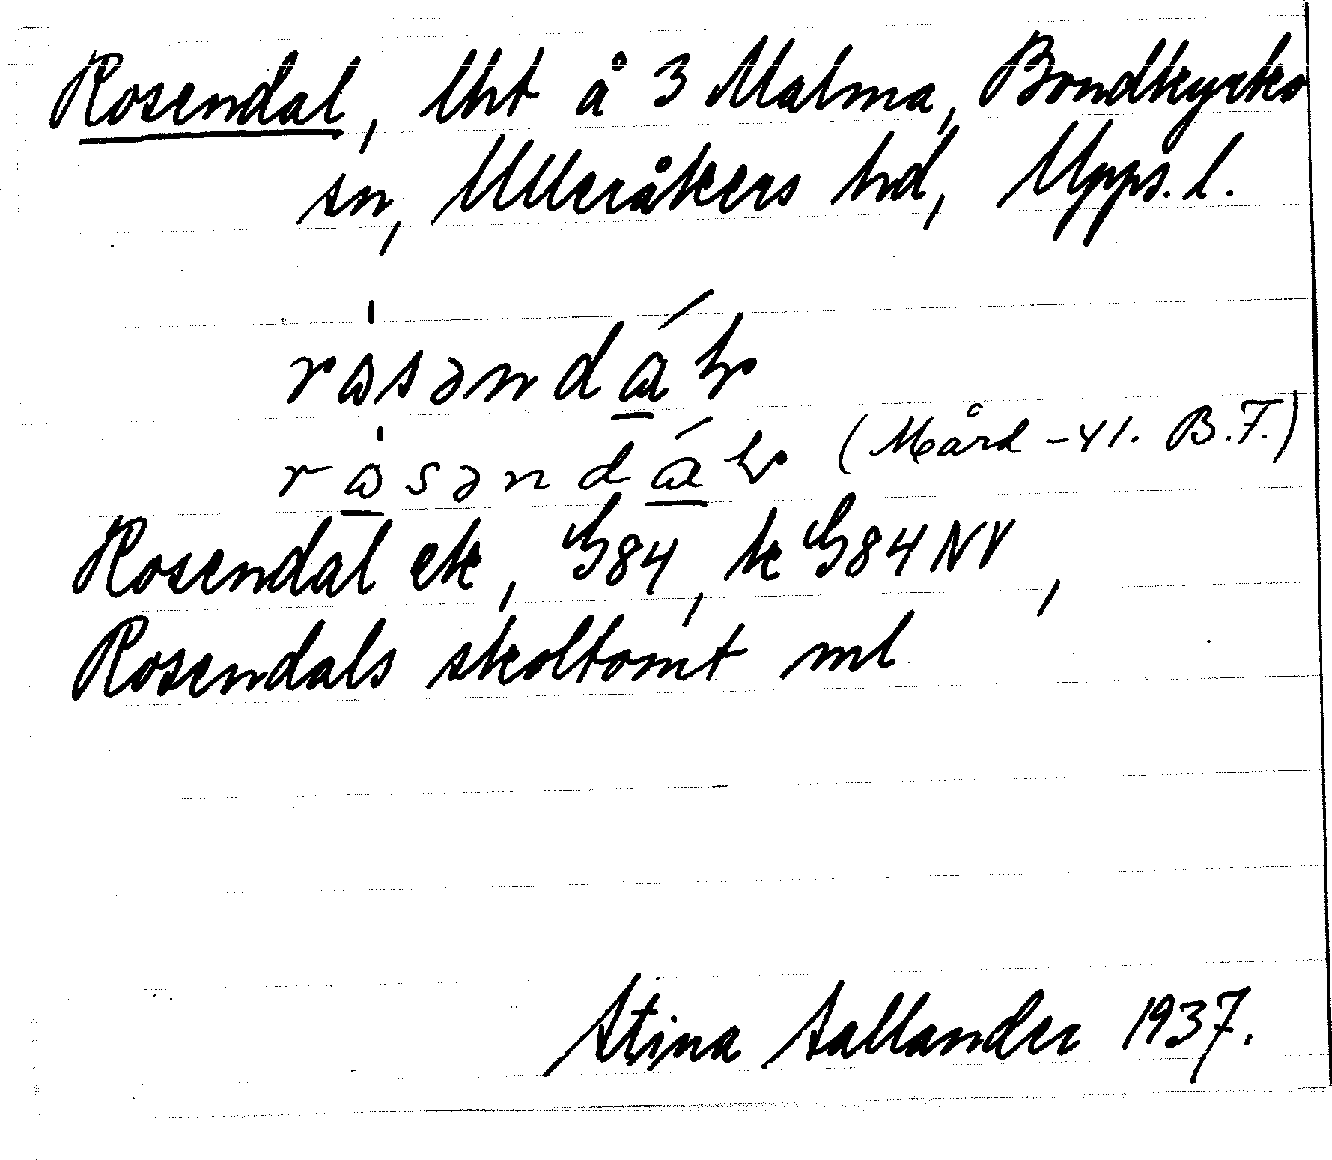 Rosendal, lht å 3 Malma, Bondkyrko
sn, Ulleråkers hd, Upps. l.
(Mård -41. B.F.)
Rosendal ek, G84, k G84 NV,
Rosendals skoltomt ml
Stina Sallander 1937.